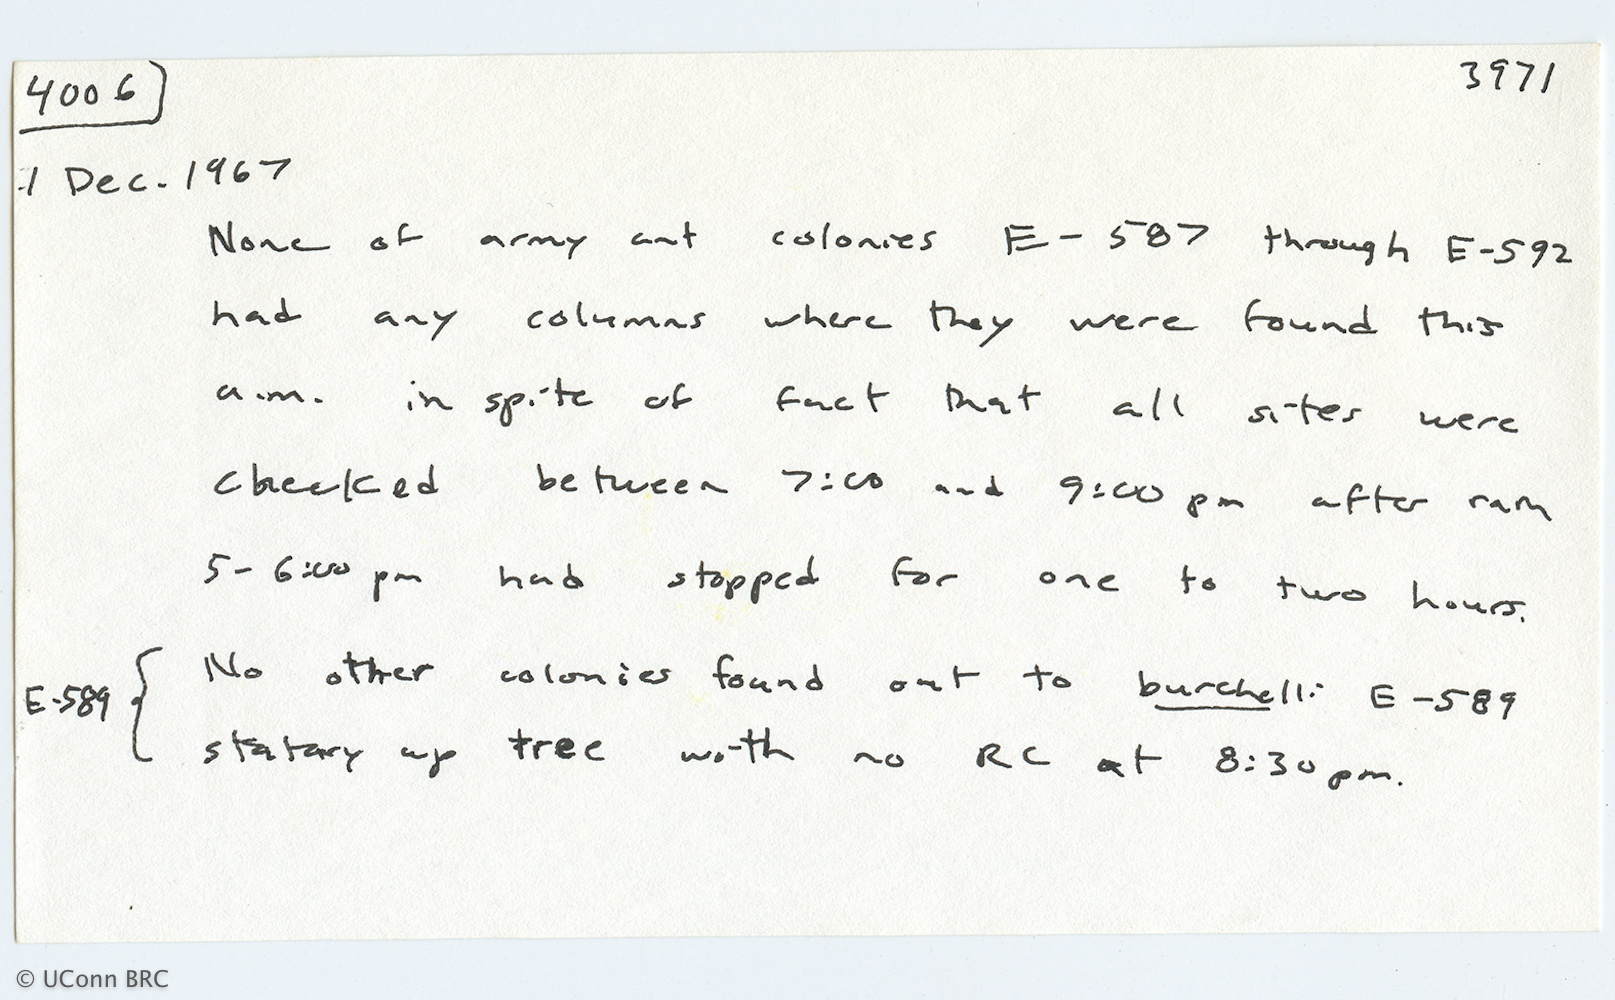 4006
3971
1 Dec. 1967
None of army ant colonies E-587 through E-592
had any columns where they were found this
a.m. in spite of fact that all sites were
checked between 7:00 and 9:00 pm after rain
5-6:00 pm had stopped for one to two hours.
No other colonies found out to burchelli E-589
E-589
statary up tree with no RC at 8:30 pm.
© UConn BRC